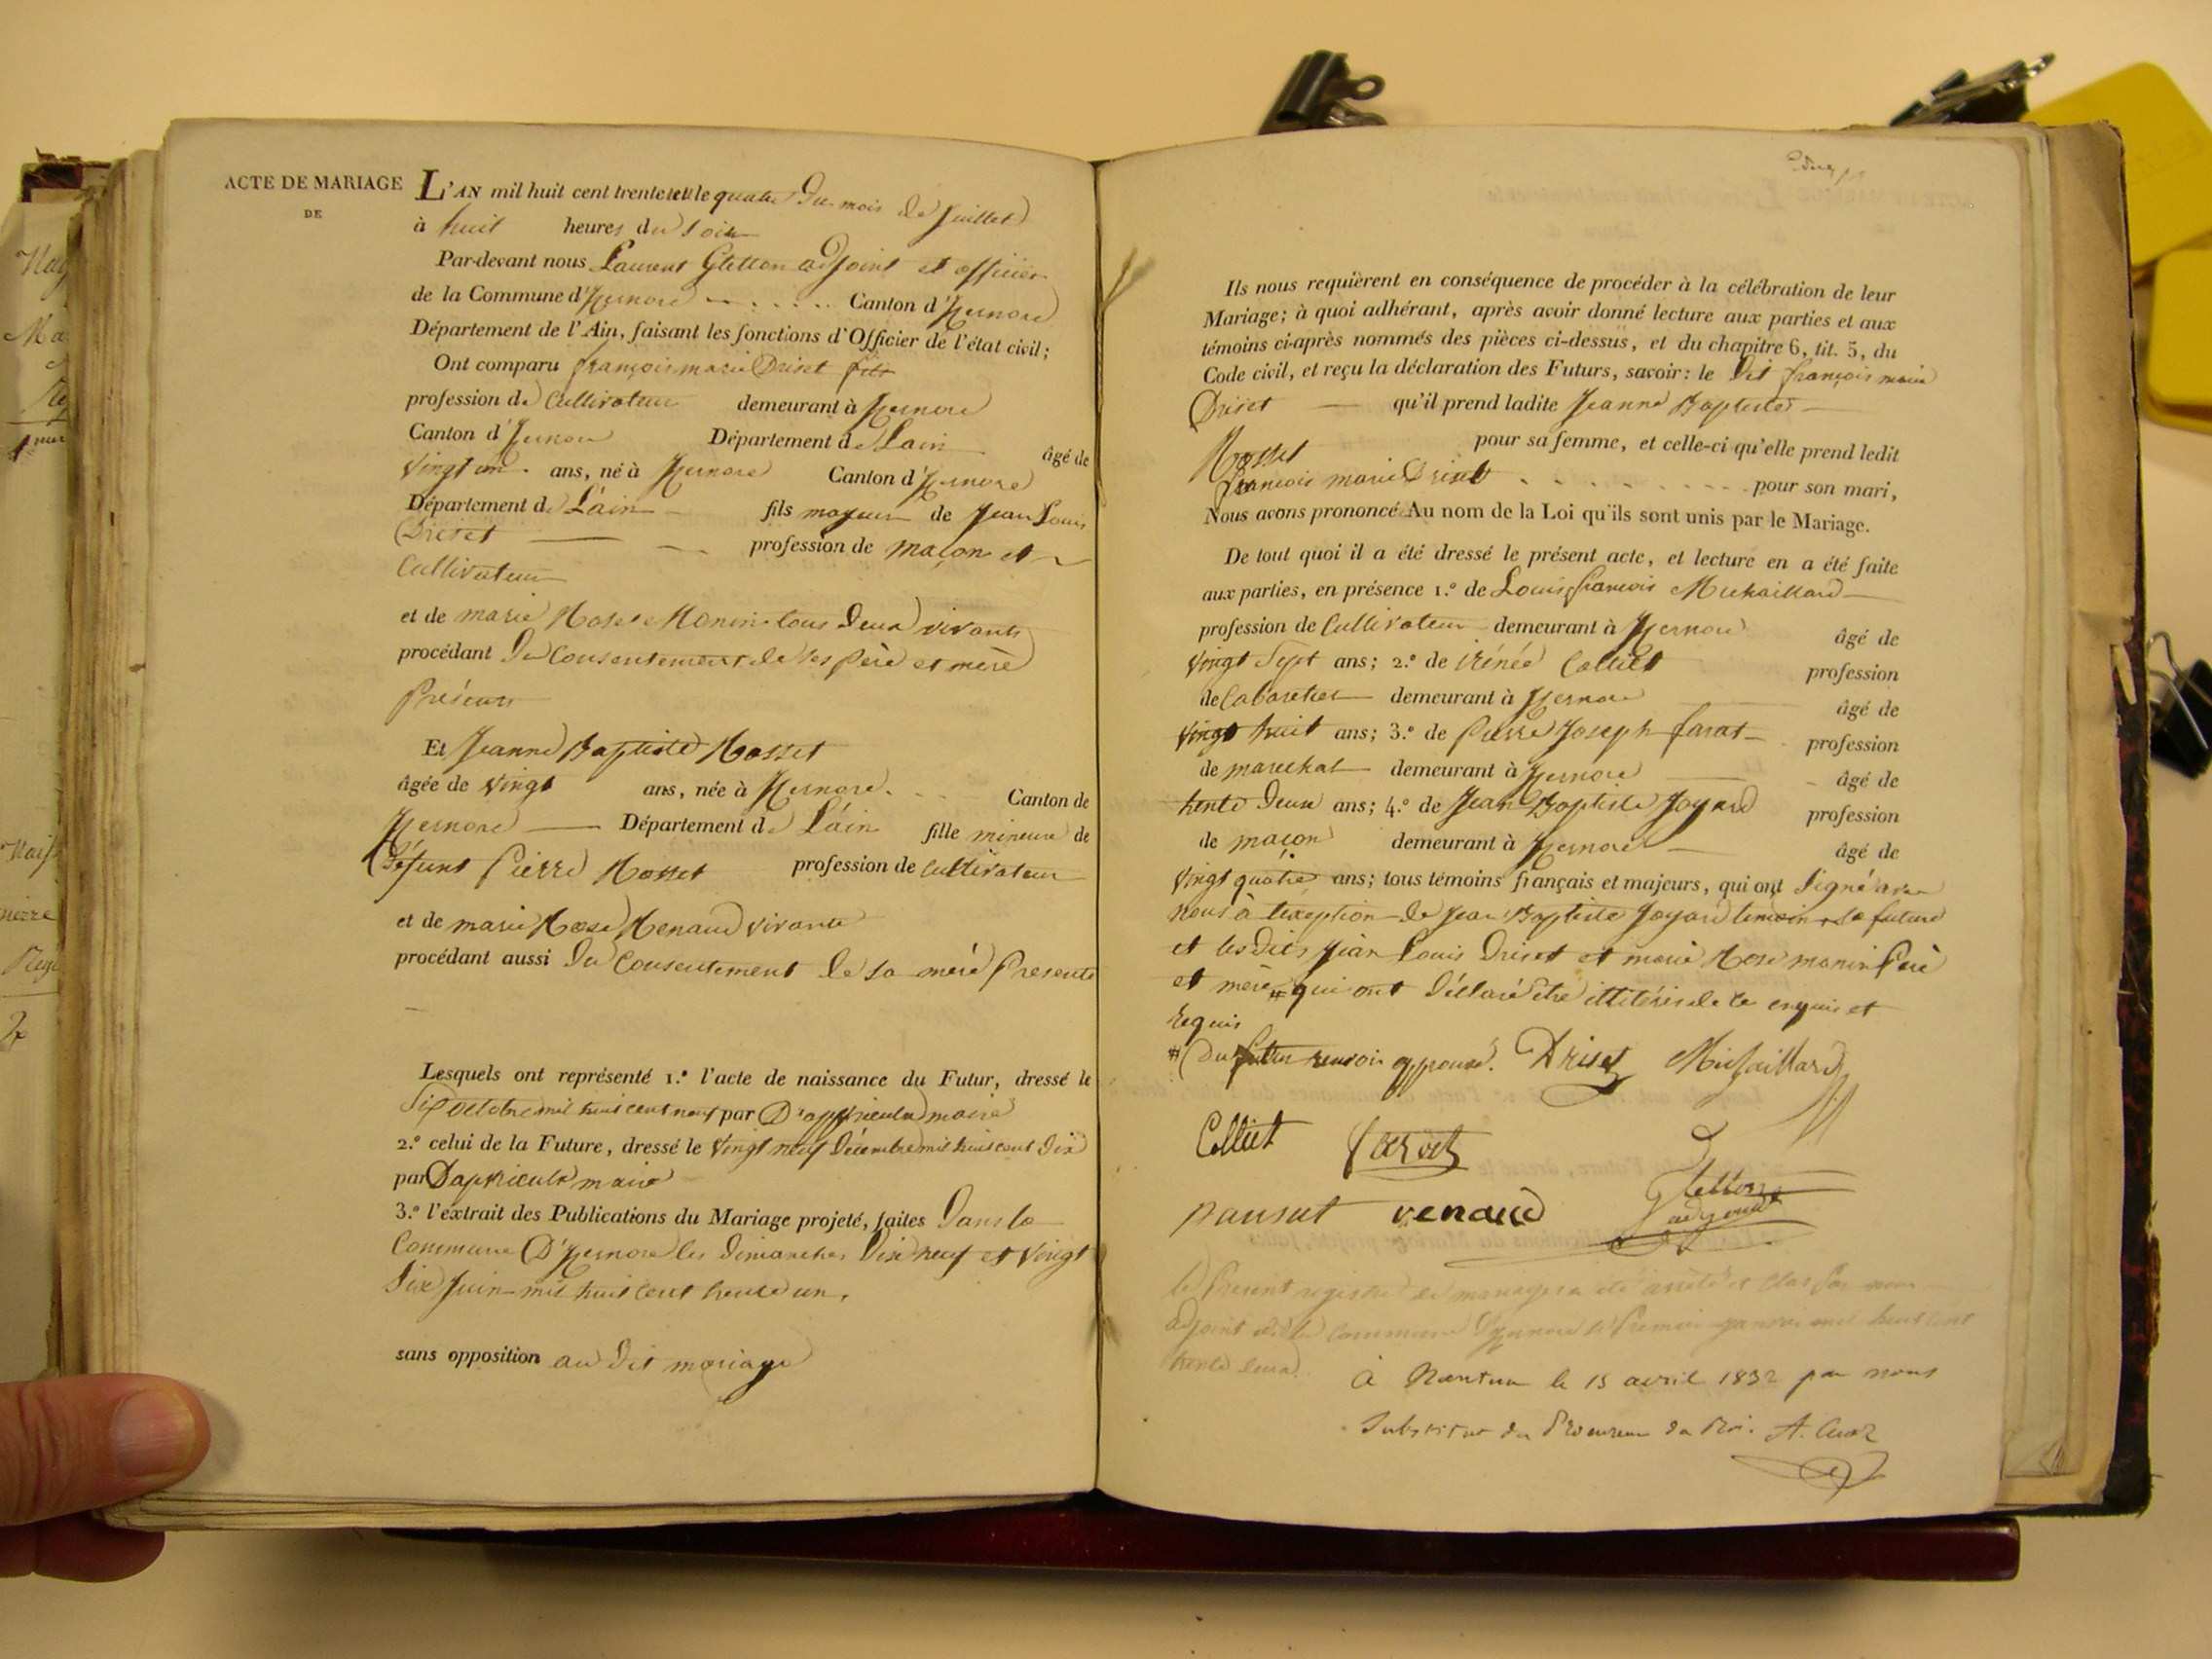 ACTE DE MARIAGE
DE
L'AN mil huit cent trente et un le quatre du mois de Juillet
à huit heures du soir
Par-devant nous Laurent Gletton adjoint et officier
de la Commune d'Izernore Canton d'Izernore
Département de l'Ain, faisant les fonctions d'Officier de l'état civil;
Ont comparu françois marie Driset fils
profession de Cultivateur demeurant à Izernore
Canton d'Izernore Département de Lain âgé de
vingt un ans, né à Izernore Canton d'Izernore
Département de L'áin fils majeur de Jean Louis
Driset profession de maçon et
Cultivateur
et de marie Rose Monin tous deux vivants
procédant du Consentement de ses père et mère
Présents
Et Jeanne Baptiste Rosset
âgée de vingt ans, née à Izernore. Canton de
Izernore Département de L'áin fille mineure de
Défunt Pierre Rosset profession de Cultivateur
et de marie Rose Renaud vivante
procédant aussi du Consentement de sa mère Presente
Lesquels ont représenté 1.º l'acte de naissance du Futur, dressé le
Six octobre mil huit cent neuf par maire
2.º celui de la Future, dressé le vingt neuf Décembre mil huit cent dix
par maire
3.º l'extrait des Publications du Mariage projeté, faites Dans la
Commune D'Izernore les dimanches Dix neuf et vingt
Six Juin mil huit cent trente un.
sans opposition au dit mariage
Ils nous requièrent en conséquence de procéder à la célébration de leur
Mariage; à quoi adhérant, après avoir donné lecture aux parties et aux
témoins ci-après nommés des pièces ci-dessus, et du chapitre 6, tit. 5, du
Code civil, et reçu la déclaration des Futurs, savoir: le Dit françois marie
Driset qu'il prend ladite Jeanne Baptiste
Rosset pour sa femme, et celle-ci qu'elle prend ledit
françois marie Driset pour son mari,
Nous avons prononcé Au nom de la Loi qu'ils sont unis par le Mariage.
De tout quoi il a été dressé le présent acte, et lecture en a été faite
aux parties, en présence 1.º de Louis françois Michaillard
profession de Cultivateur demeurant à Izernore âgé de
vingt Sept ans; 2.º de irénée Colliet profession
de Cabaretier demeurant à Izernore âgé de
vingt huit ans; 3.º de Pierre Joseph profession
de marechal demeurant à Izernore âgé de
trente deux ans; 4.º de Jean Baptiste Joyard profession
de maçon demeurant à Izernore âgé de
vingt quatre ans; tous témoins français et majeurs, qui ont Signé avec
nous à l'exception de Jean Baptiste Joyard temoin, la future
et les dits Jean Louis Driset et marie Rose monin Père
et mère # qui ont déclaré être illitérés de ce enquis et
requis
# du futur renvoi approuvé. Driset Michaillard
Colliet
pansut renaud Gletton
adjoint
le Present registre de mariages a été arrêté et clos par nous
adjoint de la Commune d'Izernore le Premier janvier mil huit cent
trente deux
à Nantua le 15 avril 1832 par nous
Substitut du Procureur du Roi.